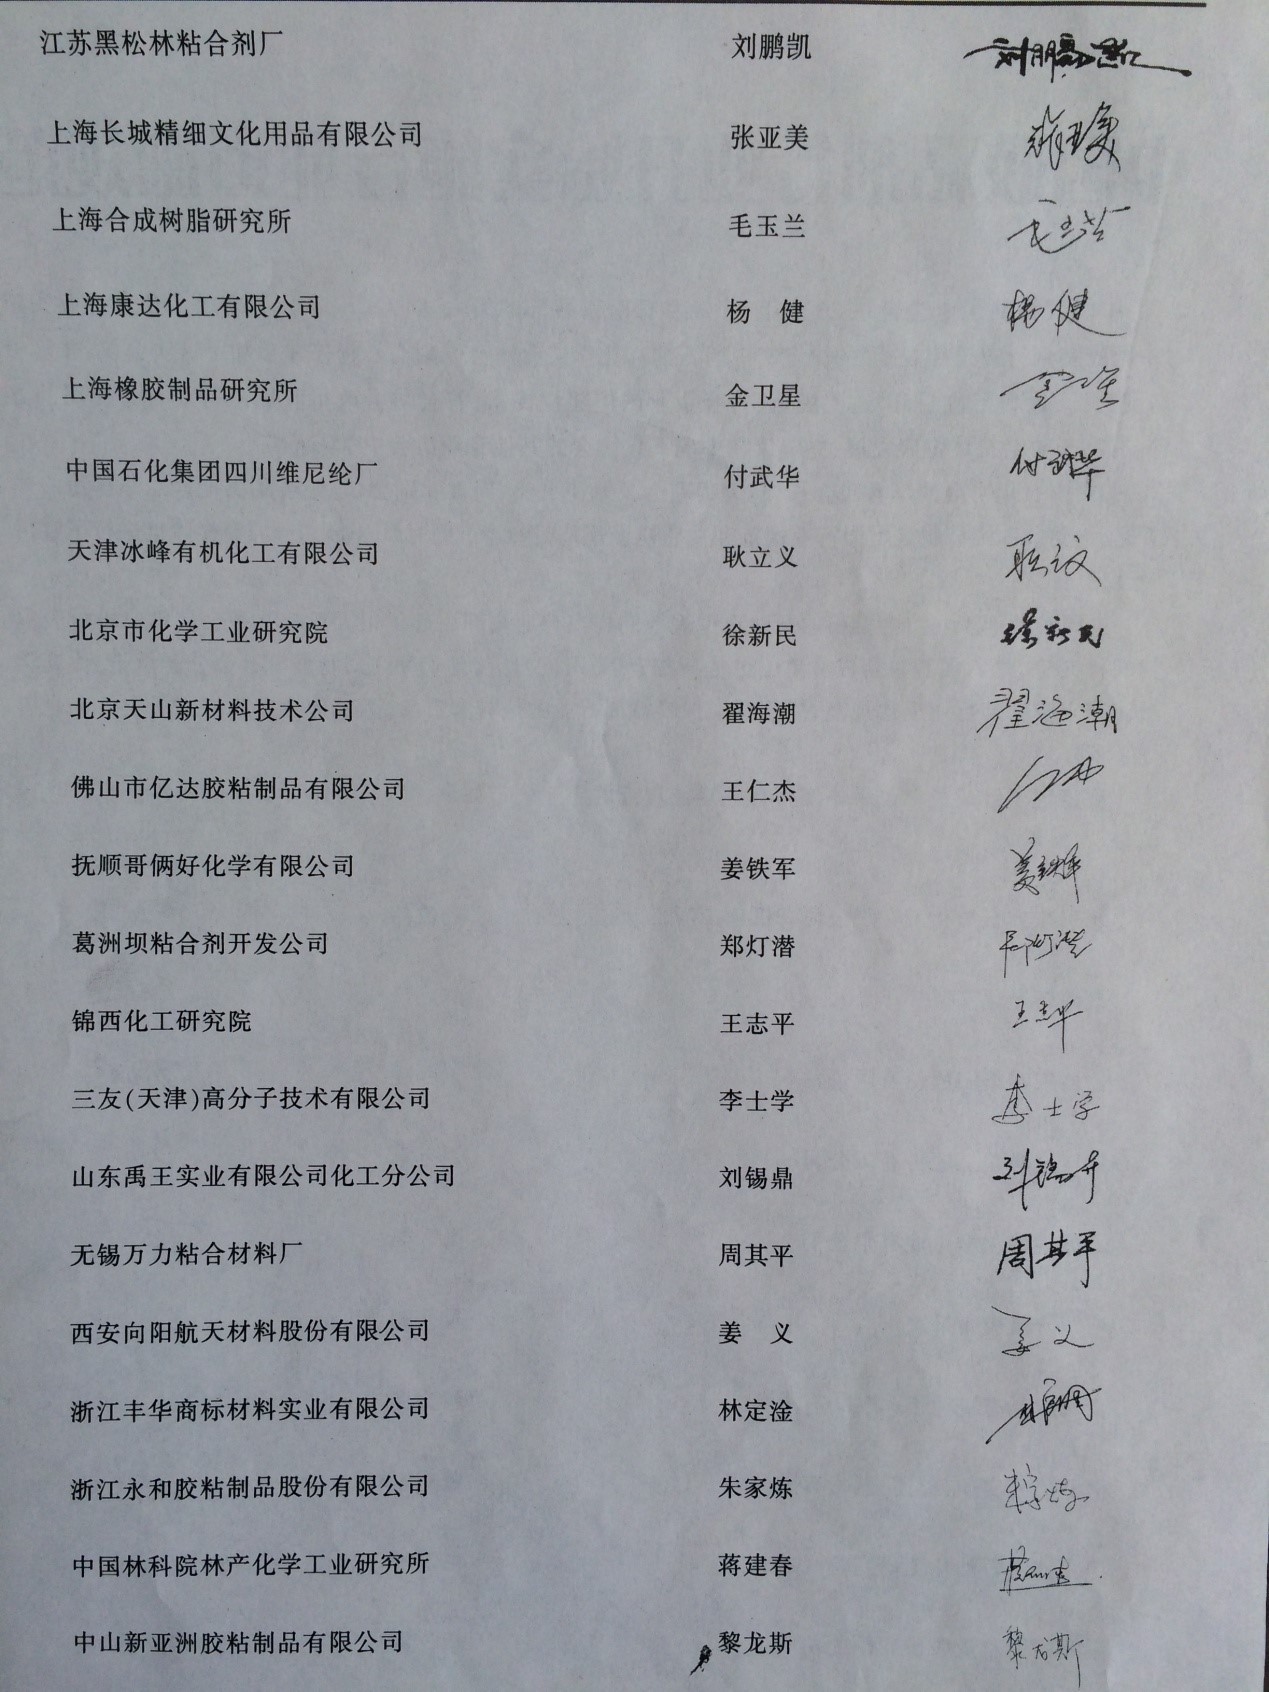 江苏黑松林粘合剂厂 刘鹏凯 刘鹏凯
上海长城精细文化用品有限公司 张亚美
上海合成树脂研究所 毛玉兰 毛玉兰
上海康达化工有限公司 杨 健 杨健
上海橡胶制品研究所 金卫星
中国石化集团四川维尼纶厂 付武华 付武华
天津冰峰有机化工有限公司 耿立义 耿立义
北京市化学工业研究院 徐新民 徐新民
北京天山新材料技术公司 翟海潮 翟海潮
佛山市亿达胶粘制品有限公司 王仁杰
抚顺哥俩好化学有限公司 姜铁军 姜铁军
葛洲坝粘合剂开发公司 郑灯潜
锦西化工研究院 王志平 王志平
三友(天津)高分子技术有限公司 李士学 李士学
山东禹王实业有限公司化工分公司 刘锡鼎
无锡万力粘合材料厂 周其平 周其平
西安向阳航天材料股份有限公司 姜 义 姜义
浙江丰华商标材料实业有限公司 林定淦
浙江永和胶粘制品股份有限公司 朱家炼 朱家炼
中国林科院林产化学工业研究所 蒋建春
中山新亚洲胶粘制品有限公司 黎龙斯 黎龙斯